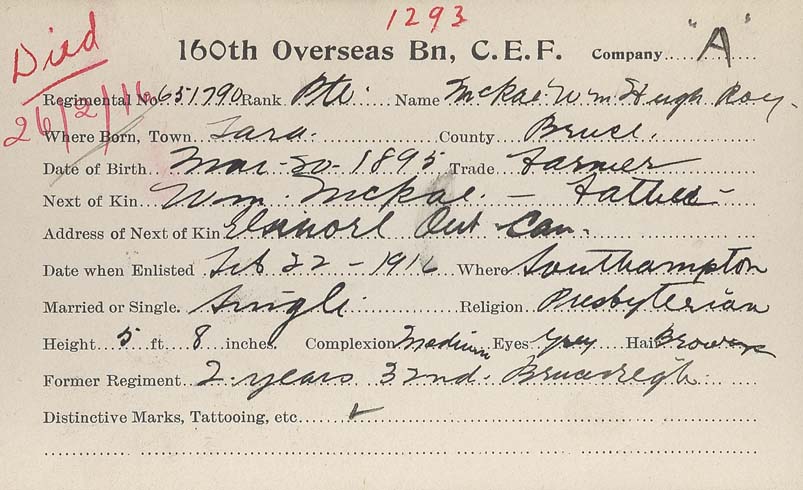 1293
Died
26/2/16
160th Overseas Bn, C.E.F. Company "A"
Regimental No 651790 Rank Pte. Name McRae Wm Hugh Roy.
Where Born, Town. Tara. County Bruce.
Date of Birth Mar-20-1895 Trade Farmer
Next of Kin Wm. McRae. - Father-
Address of Next of Kin Elsinore Ont Can.
Date when Enlisted Feb 22-1916 Where Southampton
Married or Single. Single. Religion Presbyterian
Height 5 ft. 8 inches. Complexion Medium Eyes Grey Hair Brown
Former Regiment 2 years 32nd. Bruce regt.
Distinctive Marks, Tattooing, etc ✓